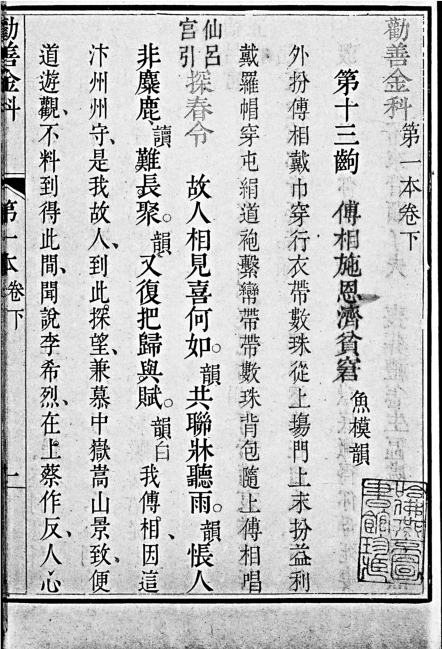 勸善金科
第一本卷下
第十三齣 傅相施恩濟貧窘 魚模韻
外扮傅相戴巾穿行衣帶數珠從上場門上末扮益利
戴羅帽穿屯絹道袍繫鸞帶帶數珠背包隨上傅相唱
仙呂宮引 探春令 故人相見喜何如。韻共聯牀聽雨。韻悵人
非麋鹿讀難長聚。韻又復把歸與賦。韻白我傅相、因這
汴州州守、是我故人、到此探望、兼慕中嶽嵩山景致、便
道遊觀、不料到得此間、聞說李希烈、在上蔡作反、人心
勸善金科
第一本卷下
一